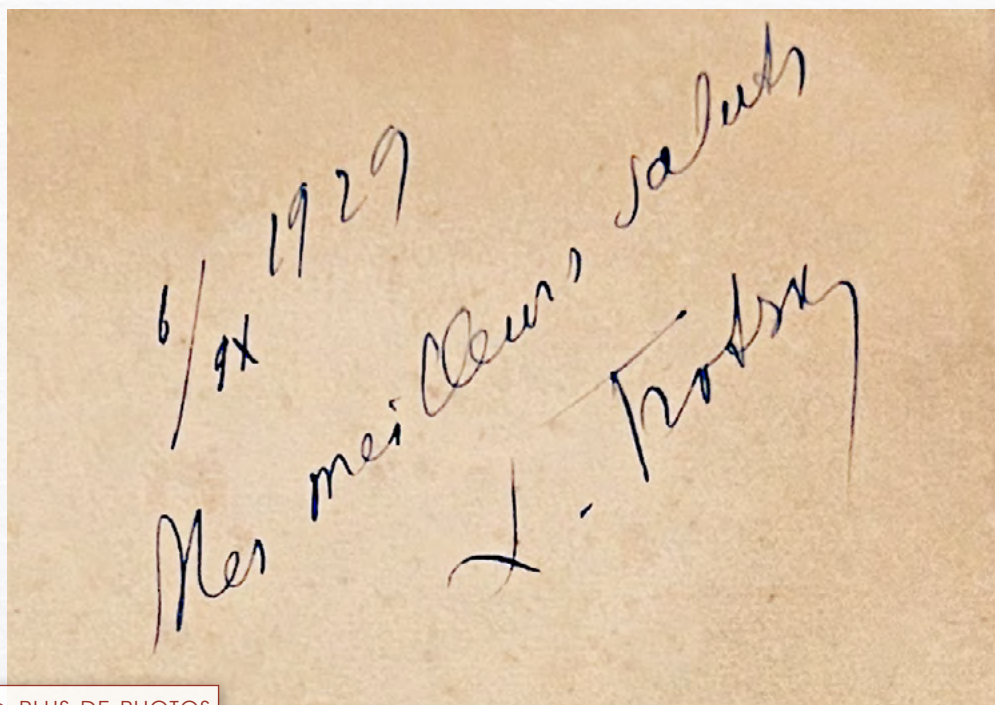 6/9X 1929
Mes meilleurs saluts
L. Trotsky
PLUS DE PHOTOS